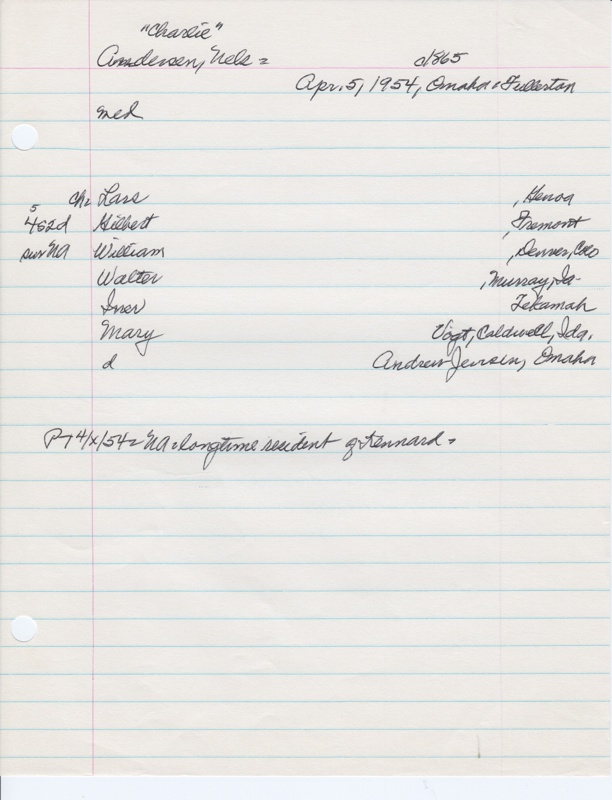 "Charlie"
Andersen, Nels = c/865
Apr. 5, 1954, Omaha = Fullerton
med
ch: Lars , Genoa
5
4s2d Hilbert , Fremont
sur NA William , Denver, Colo
Walter , Murray, Ia-
Iner Tekamah
Mary Vogt, Caldwell, Ida.
d Andrew Jensen, Omaha
PT 4/x/54= NA = longtime resident of Kennard =